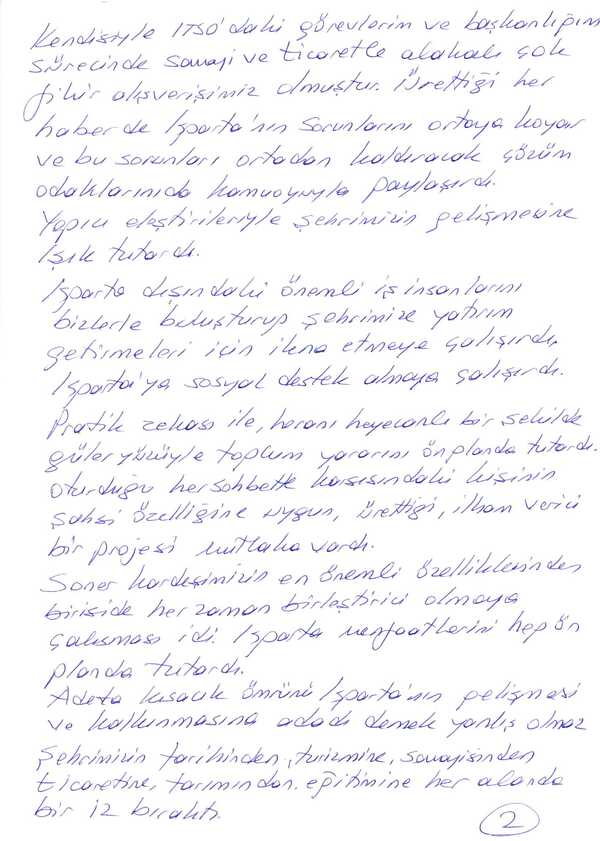 Kendisiyle ITSO'daki görevlerim ve başkanlığım
sürecinde sanayi ve ticaretle alakalı çok
fikir alışverişimiz olmuştur. Ürettiği her
haberde Isparta'nın sorunlarını ortaya koyar
ve bu sorunları ortadan kaldıracak çözüm
odaklarınıda kamuoyuyla paylaşırdı.
Yapıcı eleştirileriyle şehrimizin gelişmesine
ışık tutardı.
Isparta dışındaki önemli iş insanlarını
bizlerle buluşturup şehrimize yatırım
getirmeleri için ikna etmeye çalışırdı.
Isparta'ya sosyal destek almaya çalışırdı.
Pratik zekası ile, her anı heyecanlı bir şekilde
güler yüzüyle toplum yararını ön planda tutardı.
Oturduğu her sohbette karşısındaki kişinin
şahsi özelliğine uygun, ürettiği, ilham verici
bir projesi mutlaka vardı.
Soner kardeşimizin en önemli özelliklerinden
biriside her zaman birleştirici olmaya
çalışması idi. Isparta menfaatlerini hep ön
planda tutardı.
Adeta kısacık ömrünü Isparta'nın gelişmesi
ve kalkınmasına adadı demek yanlış olmaz
Şehrimizin tarihinden, turizmine, sanayisinden
ticaretine, tarımından, eğitimine her alanda
bir iz bıraktı.
2